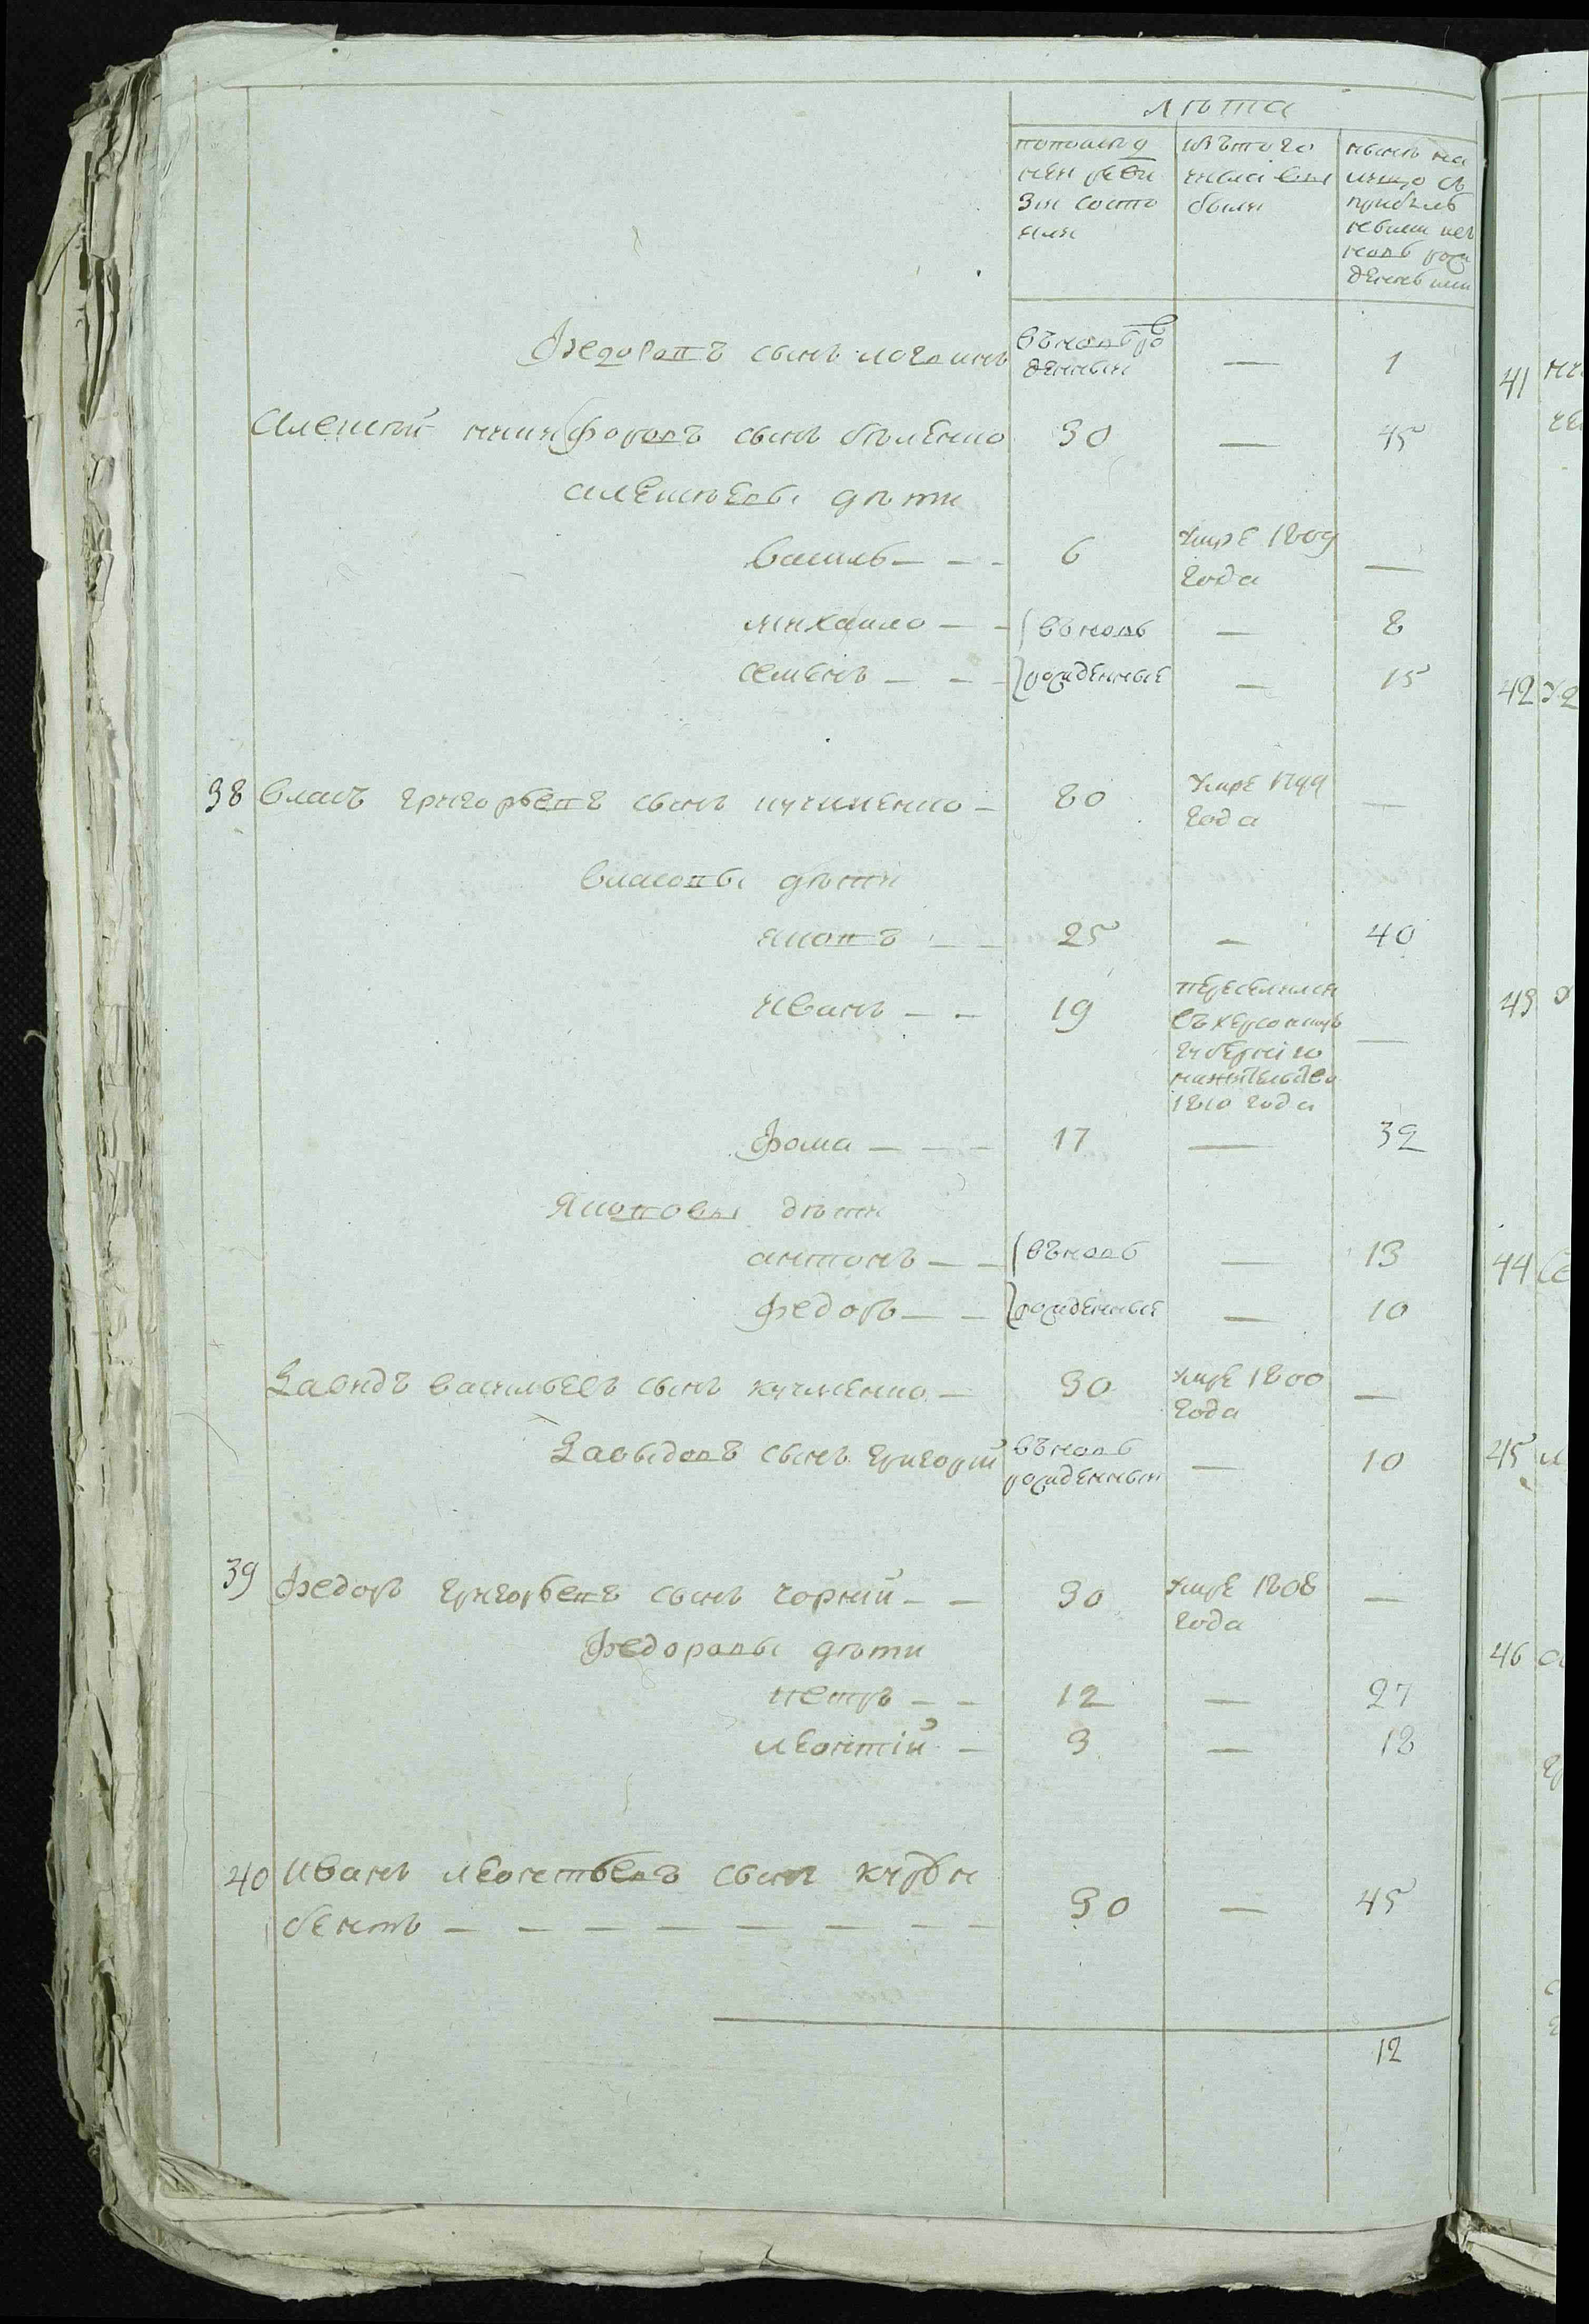 лѣта
по послѣд
ней реви
зіи состо
яли
изъ того
числа вы
были
нынѣ на
лицо съ
прибылы
вновь рож
денными
Федоровъ сынъ логвинъ
вновь ро
денный — 1
Алексѣй никифоровъ сынъ бѣленко 30 — 45
алексѣевы дѣти
василь — — — 6 умре 1809 —
года
михайло — — вновь — 8
семенъ — — — рожденные — 15
38 власъ григорьевъ сынъ кучменко — 80 умре 1799 —
года
власовы дѣти
яковъ — — 25 — 40
иванъ — — 19 переселился —
въ херсонскую
губернію
на жительство
1810 года
Фома — — — 17 — 32
Яковвы дѣти
антонъ — — вновь — 13
федоръ — — рожденные — 10
Давидъ васильевъ сынъ кучменко — 30 умре 1800 —
года
Давыдовъ сынъ григорій вновь — 10
рожденный
39 Федоръ григорьевъ сынъ чорній — — 30 умре 1808 —
года
Федоровы дѣти
петръ — — 12 — 27
леонтій — 3 — 18
40 иванъ леонтьевъ сынъ
30 — 45
12
41
42
43
44
45
46